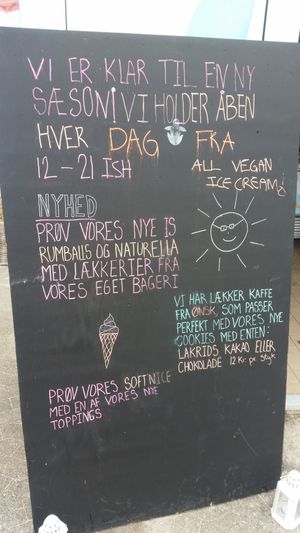 VI ER KLAR TIL EN NY
SÆSON! VI HOLDER ÅBEN
HVER DAG FRA
12-21 ISH
ALL VEGAN
ICE CREAM!
NYHED
PRØV VORES NYE IS
RUMBALLS OG NATURELLA
MED LÆKKERIER FRA
VORES EGET BAGERI
VI HAR LÆKKER KAFFE
FRA ØNSK, SOM PASSER
PERFEKT MED VORES NYE
COOKIES MED ENTEN:
LAKRIDS KAKAO ELLER
CHOKOLADE 12 Kr. pr styk
PRØV VORES SOFTNICE
MED EN AF VORES NYE
TOPPINGS